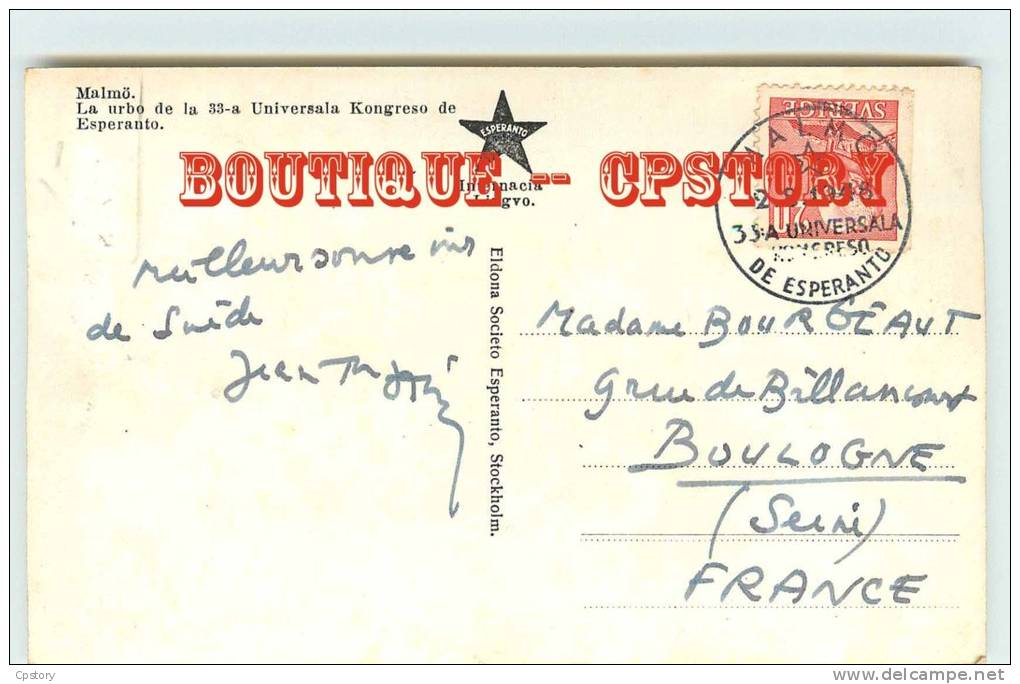 Malmö.
La urbo de la 33-a Universala Kongreso de
Esperanto.
ESPERANTO
Internacia
Lingvo.
BOUTIQUE -- CPSTORY
SVERIGE
20
MALMÖ
2.8.1948
33-A UNIVERSALA
KONGRESO
DE ESPERANTO
Meilleur souvenir
de Suède
Jean
Eldona Societo Esperanto, Stockholm.
Madame BOURGÉAUT
9 rue de Billancourt
BOULOGNE
(Seine)
FRANCE
Cpstory
delcampe.net